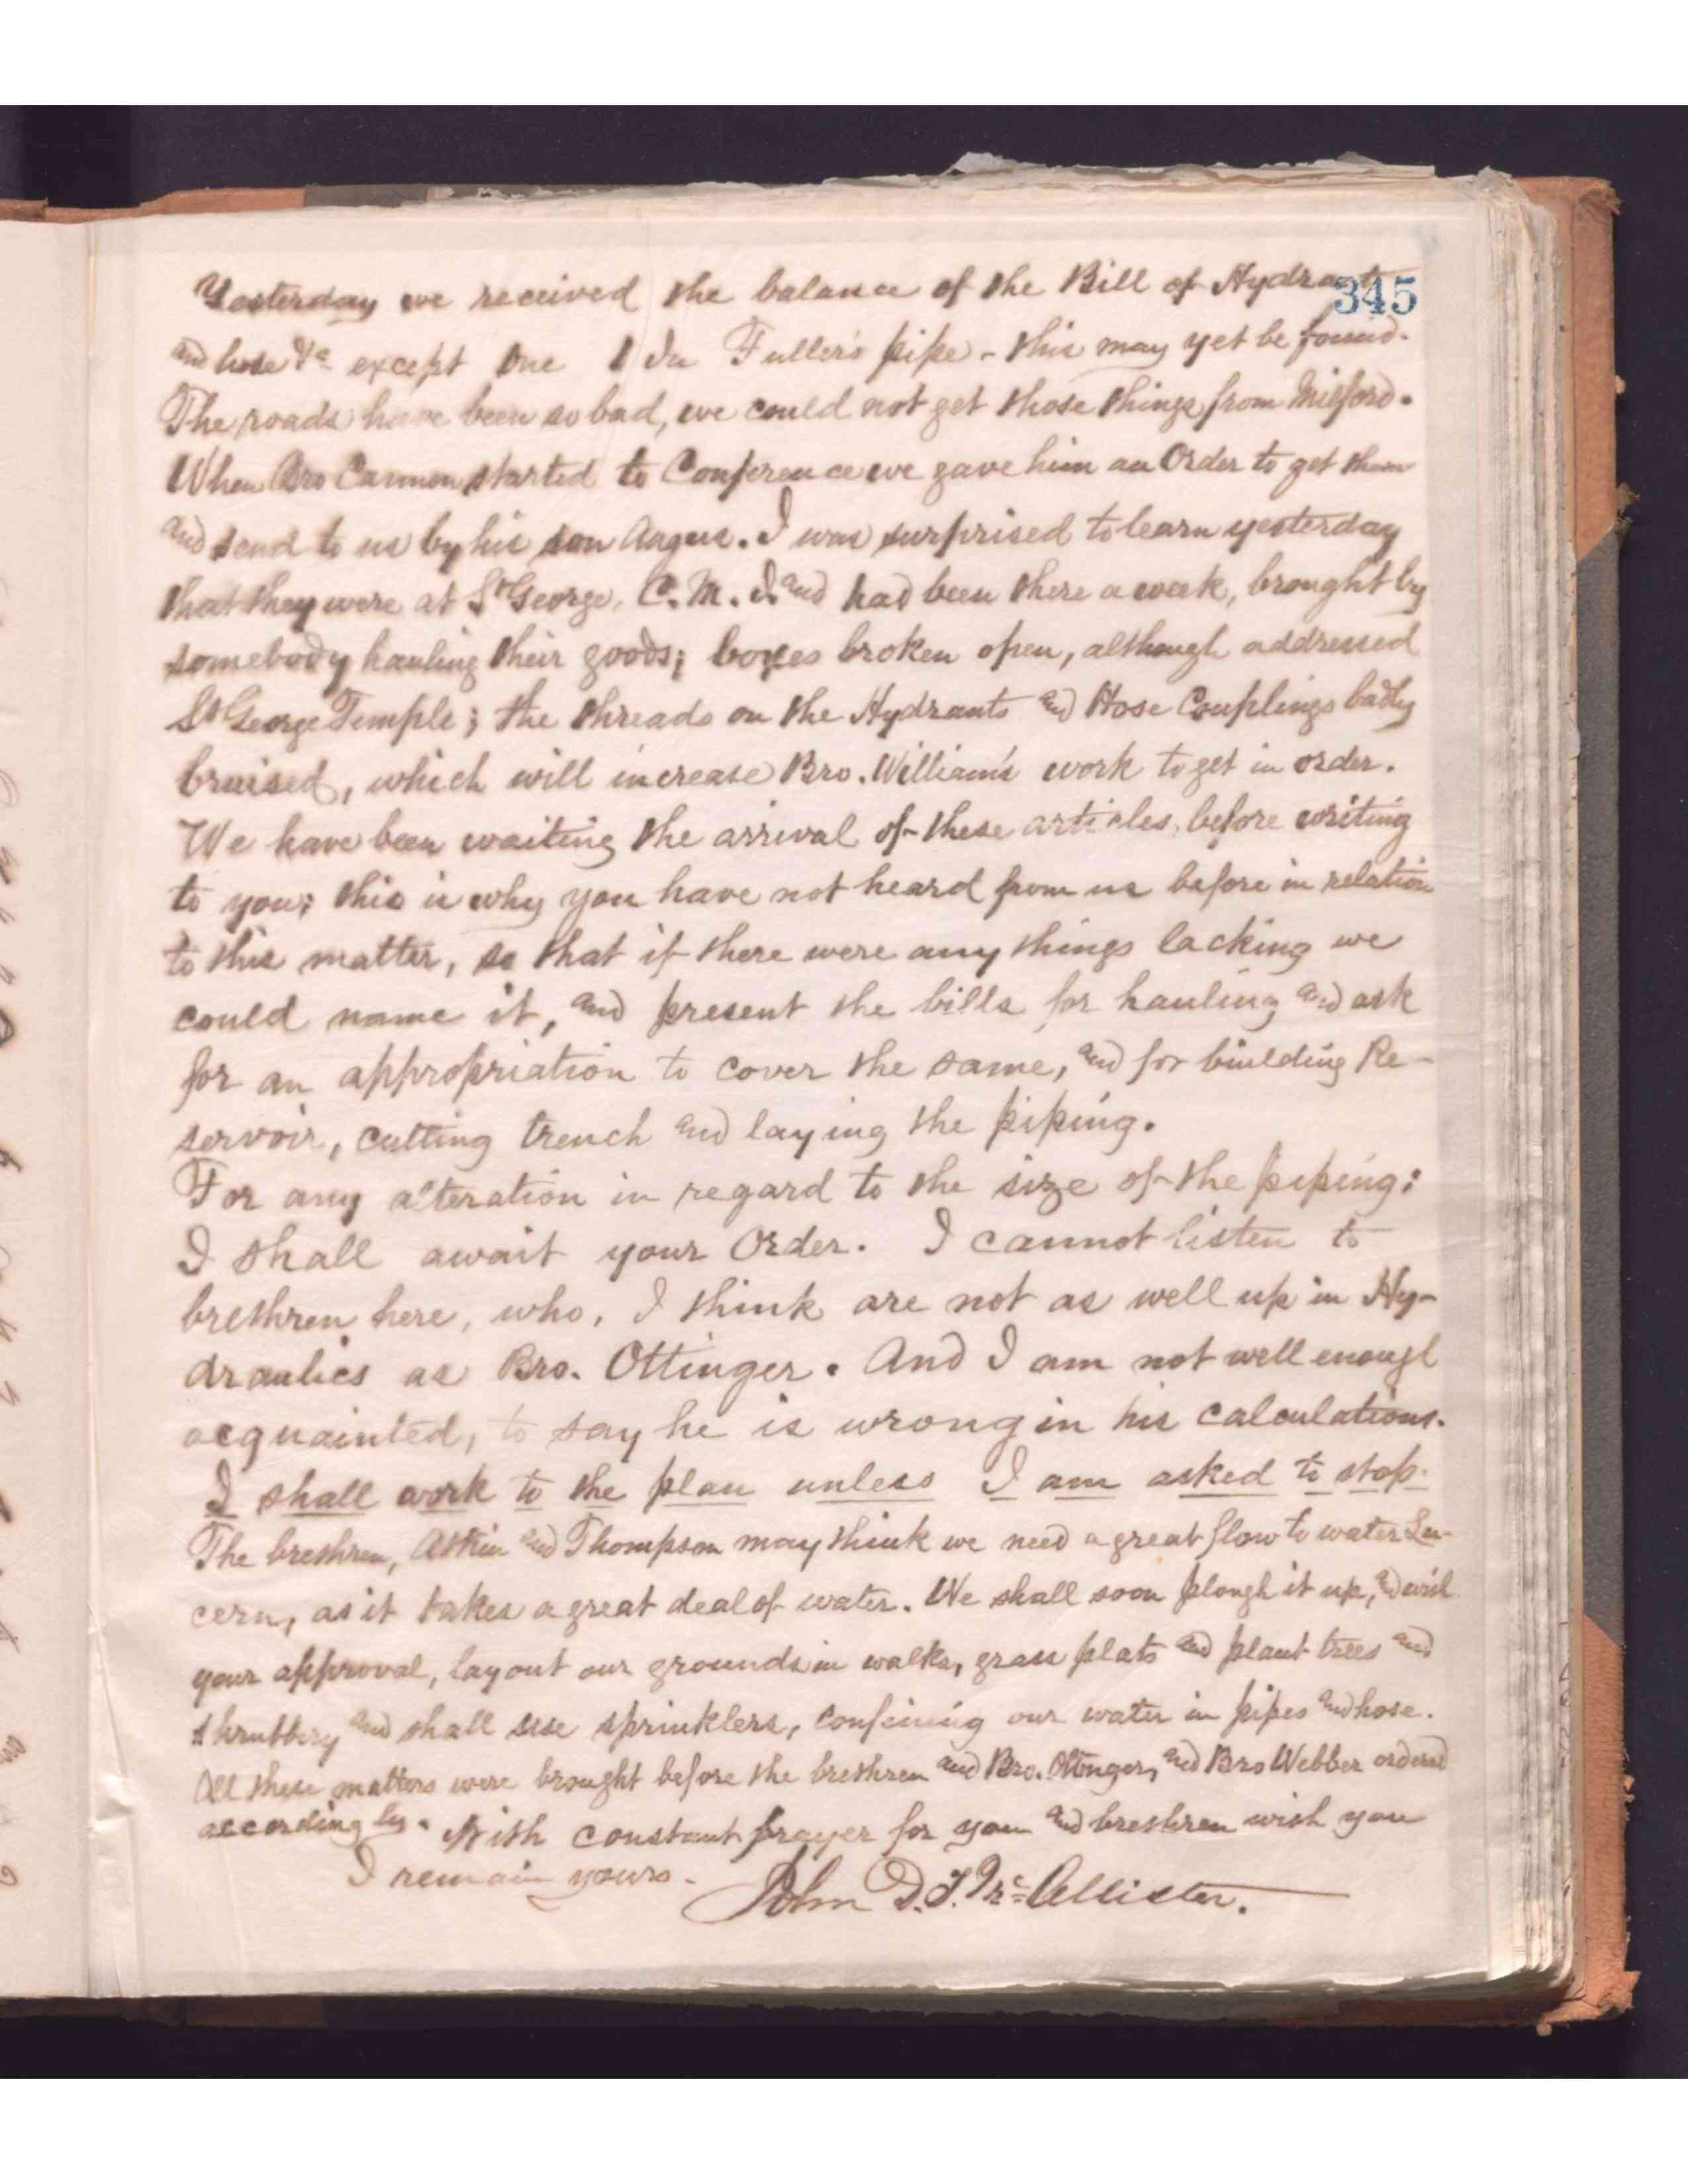 345
Yesterday we received the balance of the Bill of Hydrants
and hose &c except one 1 In Fuller's pipe - this may yet be found.
The roads have been so bad, we could not get those things from Milford.
When Bro Cannon started to Conference we gave him an Order to get them
and send to us by his son Angus. I was surprised to learn yesterday
that they were at St George, C. M. I. and had been there a week, brought by
somebody hauling their goods; boxes broken open, although addressed
St George Temple; the threads on the Hydrants and Hose Couplings badly
bruised, which will increase Bro. William's work to get in order.
We have been waiting the arrival of these articles, before writing
to you; this is why you have not heard from us before in relation
to this matter, so that if there were any things lacking we
could name it, and present the bills for hauling and ask
for an appropriation to cover the same, and for building Re-
servoir, cutting trench and laying the piping.
For any alteration in regard to the size of the piping;
I shall await your Order. I cannot listen to
brethren here, who, I think are not as well up in Hy-
draulics as Bro. Ottinger. And I am not well enough
acquainted, to say he is wrong in his calculations.
I shall work to the plan unless I am asked to stop.
The brethren, Atkin and Thompson may think we need a great flow to water Lu-
cern, as it takes a great deal of water. We shall soon plough it up, and with
your approval, layout our grounds in walks, grass plats and plant trees and
shrubbery and shall use sprinklers, confining our water in pipes and hose.
All these matters were brought before the brethren and Bro. Ottinger, and Bro Webber ordered
accordingly. With constant prayer for you and brethren with you
I remain yours.
John D. T. McAllister.